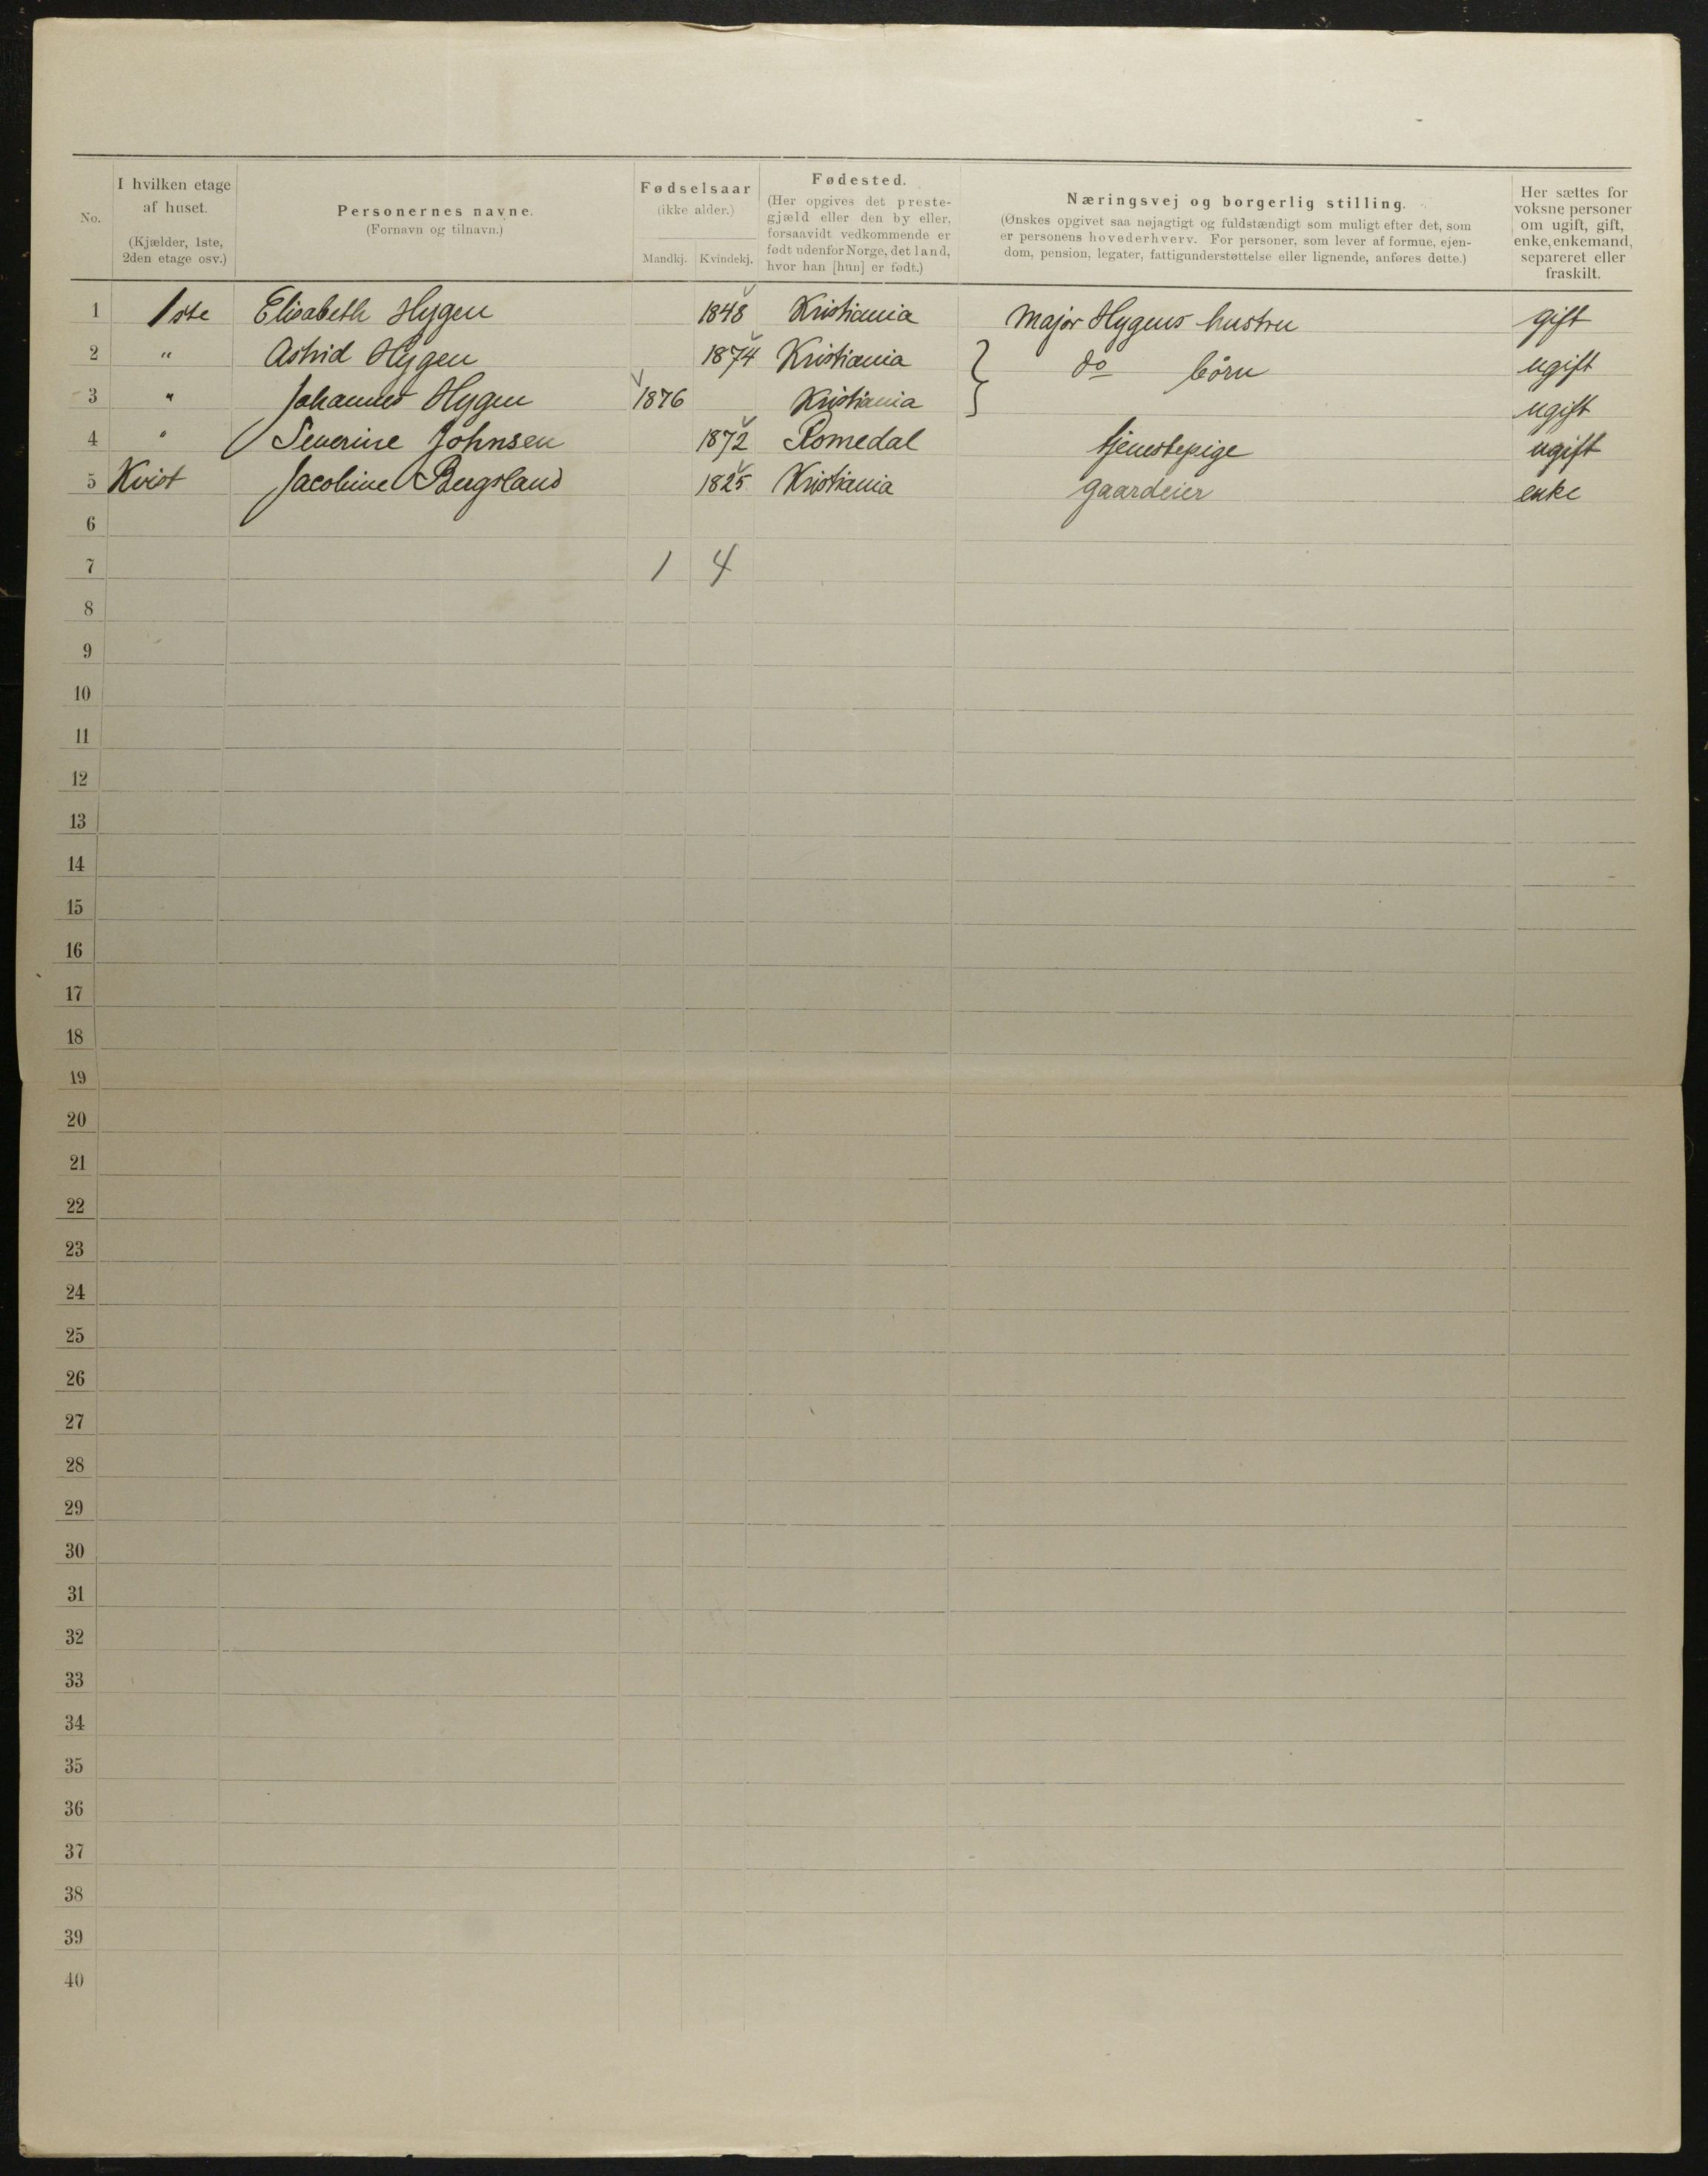 No.
I hvilken etage
af huset.
(Kjælder, 1ste,
2den etage osv.)
Personernes navne.
(Fornavn og tilnavn.)
Fødselsaar
(ikke alder.)
Mandkj. Kvindekj.
Fødested.
(Her opgives det preste-
gjæld eller den by eller,
forsaavidt vedkommende er
født udenfor Norge, det land,
hvor han [hun] er født.)
Næringsvej og borgerlig stilling.
(Ønskes opgivet saa nøjagtigt og fuldstændigt som muligt efter det, som
er personens hovederhverv. For personer, som lever af formue, ejen-
dom, pension, legater, fattigunderstøttelse eller lignende, anføres dette.)
Her sættes for
voksne personer
om ugift, gift,
enke, enkemand,
separeret eller
fraskilt.
1 1ste Elisabeth Hygen 1848 Kristiania Major Hygens hustru gift
2 " Astrid Hygen 1874 Kristiania do börn ugift
3 " Johannes Hygen 1876 Kristiania ugift
4 " Severine Johnsen 1872 Romedal tjenestepige ugift
5 Kvist Jacobine Bergsland 1825 Kristiania gaardeier enke
6
7 1 4
8
9
10
11
12
13
14
15
16
17
18
19
20
21
22
23
24
25
26
27
28
29
30
31
32
33
34
35
36
37
38
39
40